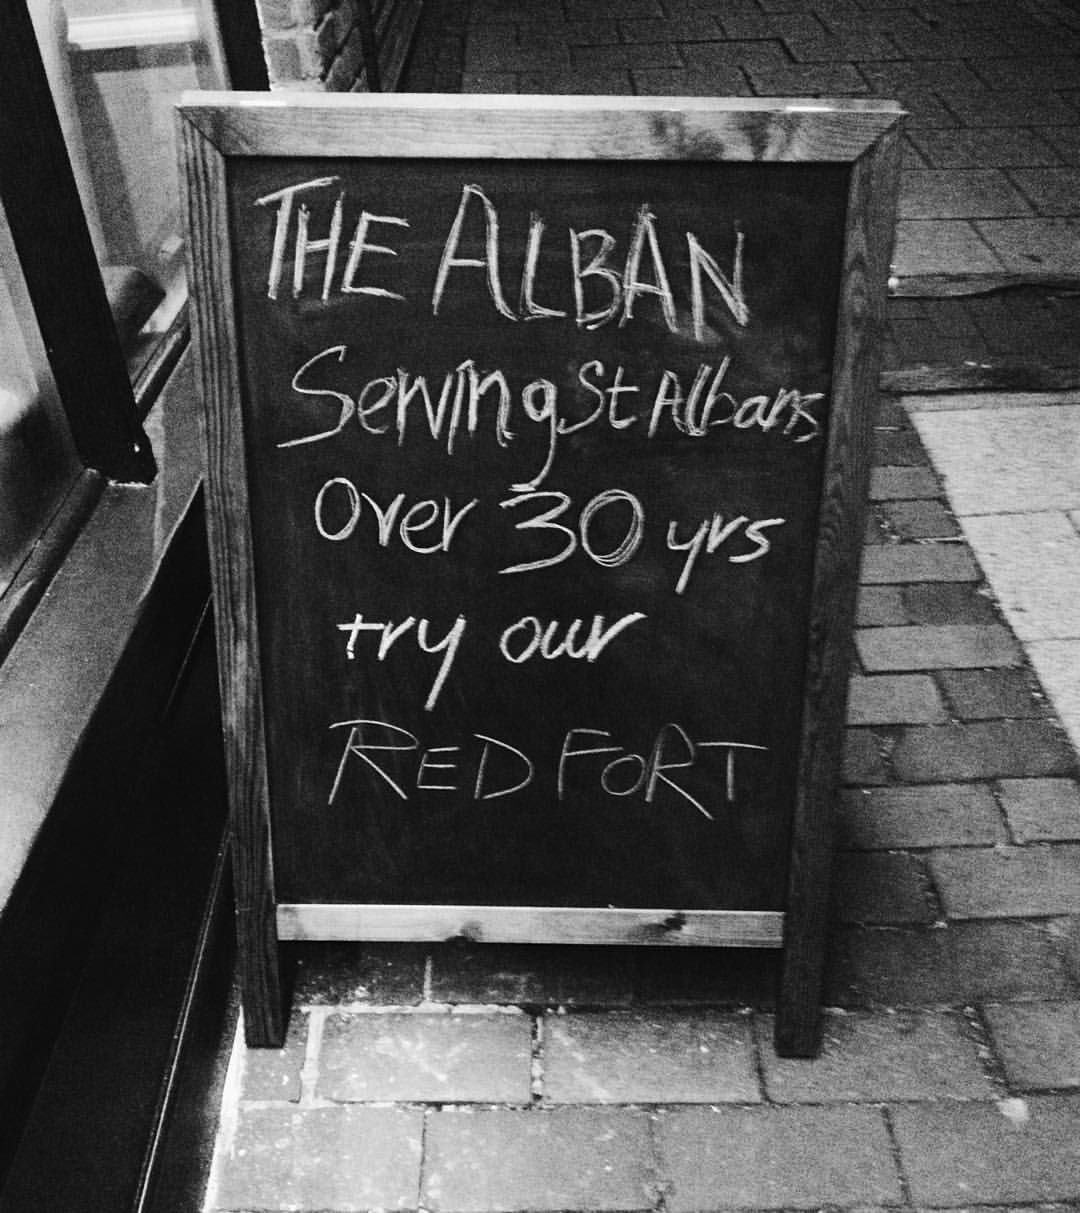 THE ALBAN
Serving St Albans
Over 30 yrs
try our
RED FORT